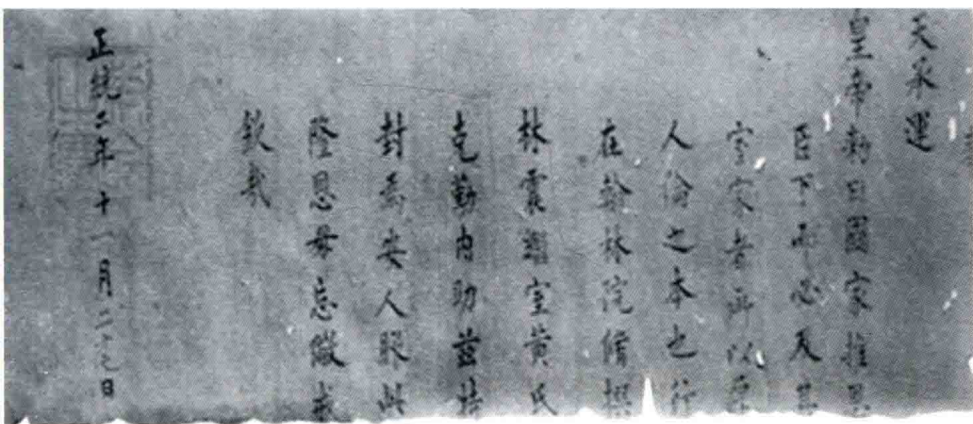 天承運
皇帝勑曰國家推恩
臣下而必及其
室家者所以厚
人倫之本也行
在翰林院脩撰
林震繼室黃氏
克勤内助茲特
封為安人服此
隆恩毋忘儆戒
欽哉
正統二年十一月二十七日